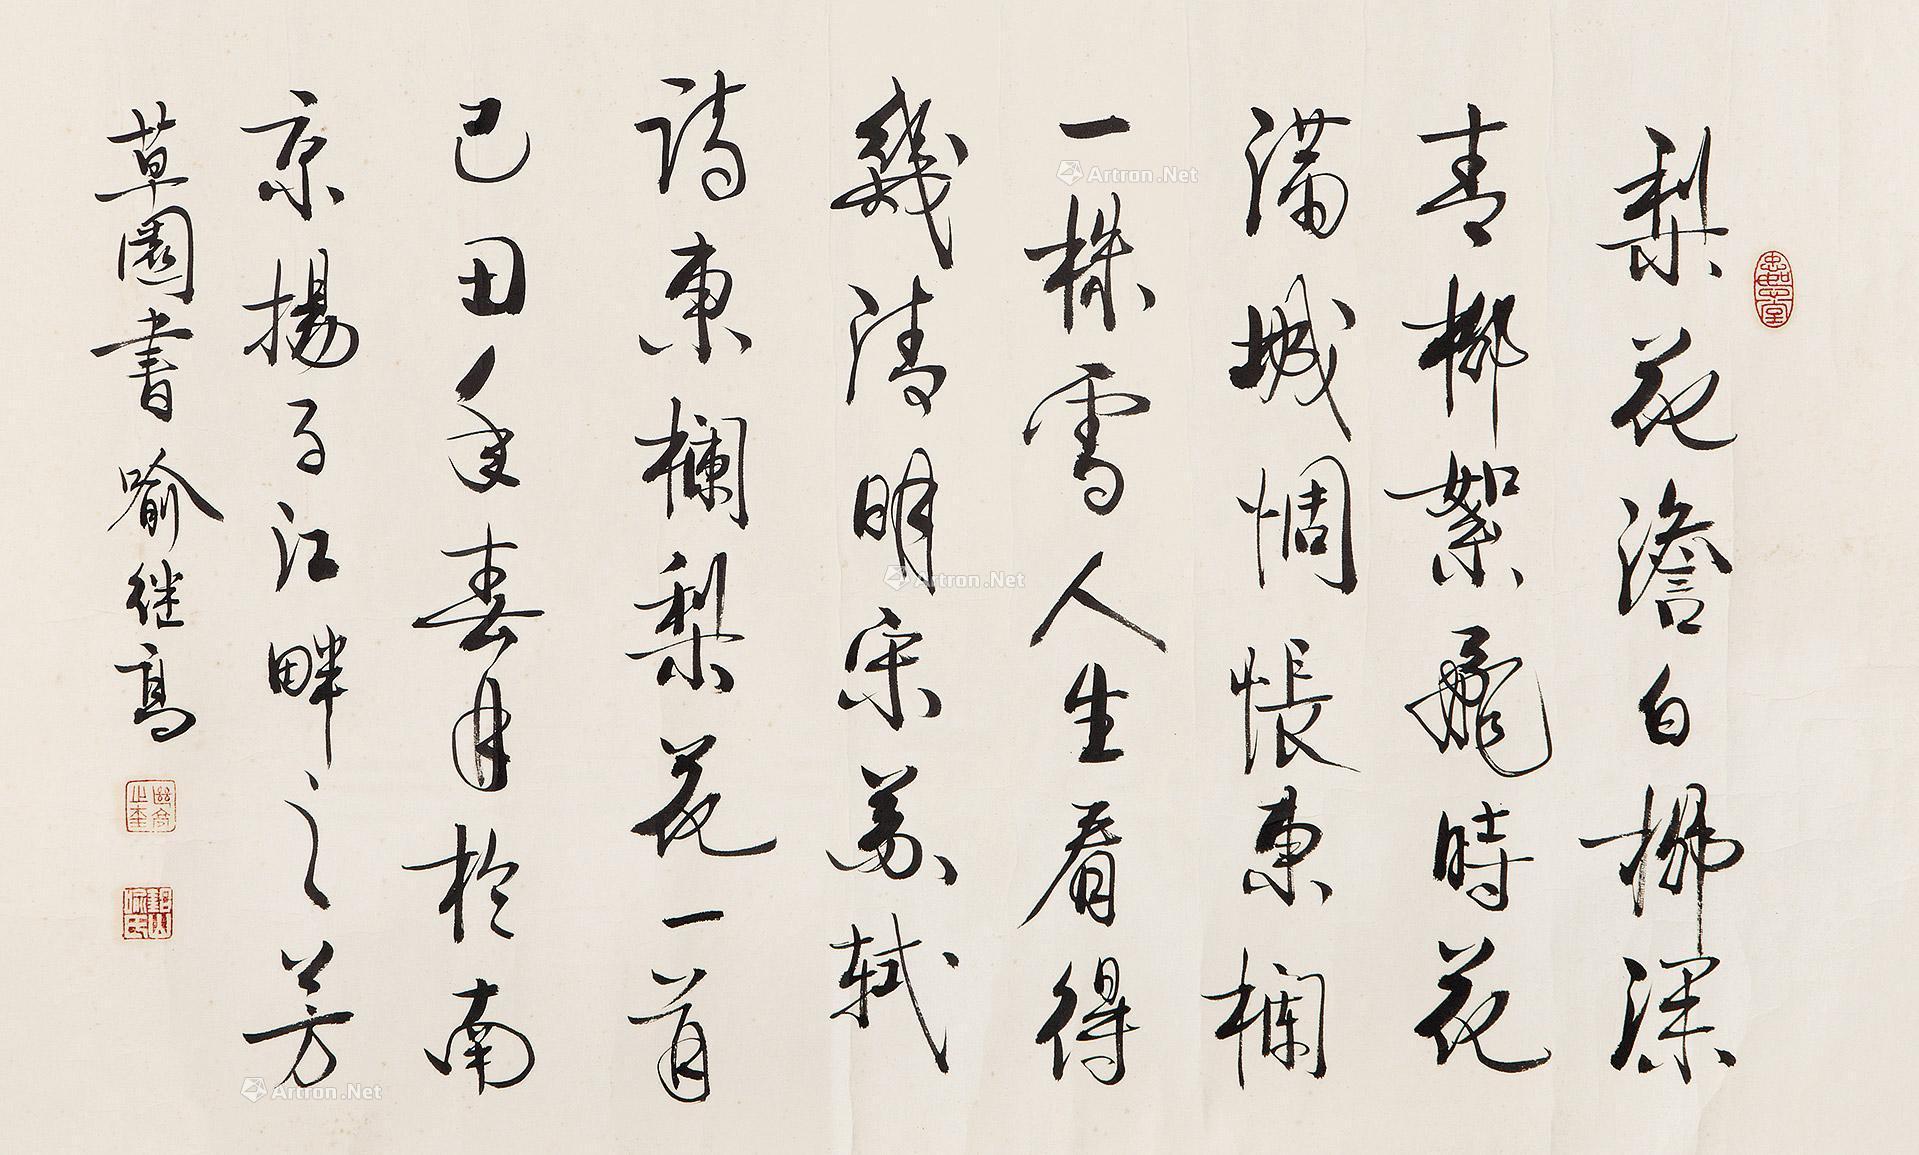 梨花澹白柳深
青柳絮飛時花
滿城惆悵東欄
一株雪人生看得
幾清明宋苏轼
詩東欄梨花一首
己丑年春月於南
京揚子江畔之芳
草園書 喻继高
Artron.Net
Artron.Net
Artron.Net